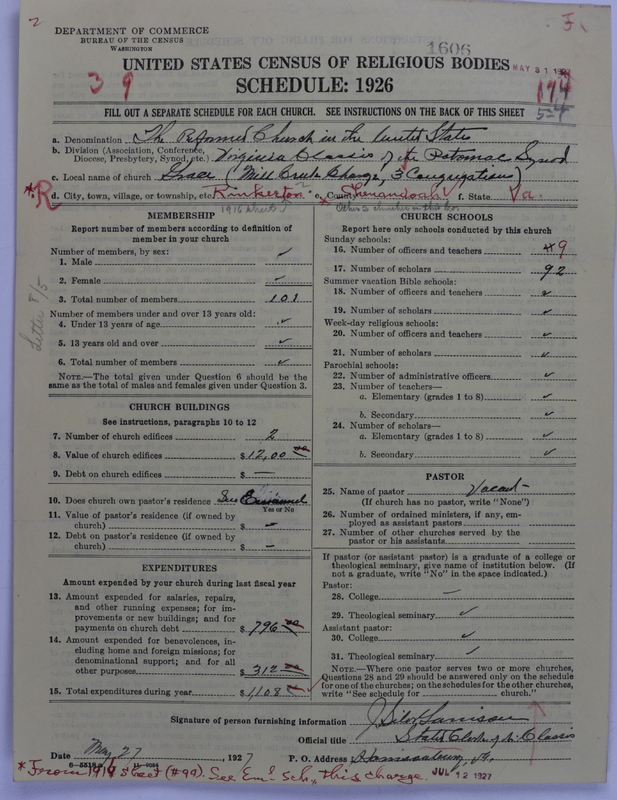 2
F.
DEPARTMENT OF COMMERCE
BUREAU OF THE CENSUS
WASHINGTON
1606
UNITED STATES CENSUS OF RELIGIOUS BODIES
MAY 31 1927
SCHEDULE: 1926
3 9
174
524
FILL OUT A SEPARATE SCHEDULE FOR EACH CHURCH. SEE INSTRUCTIONS ON THE BACK OF THIS SHEET
a. Denomination The Reformed Church in the United States
b. Division (Association, Conference, Diocese, Presbytery, Synod, etc.) Virginia Classis of the Potomac Synod
c. Local name of church Grace (Mill Creek Charge, 3 Congregations)
*R d. City, town, village, or township, etc. Rinkerton e. County Shenandoah f. State Va.
1916 Others churches in this Co.
MEMBERSHIP
Report number of members according to definition of member in your church
Number of members, by sex:
1. Male ✓
2. Female ✓
3. Total number of members 101
Number of members under and over 13 years old:
4. Under 13 years of age ✓
5. 13 years old and over ✓
6. Total number of members ✓
NOTE.—The total given under Question 6 should be the
same as the total of males and females given under Question 3.
Letter 8/5
CHURCH BUILDINGS
See instructions, paragraphs 10 to 12
7. Number of church edifices 2
8. Value of church edifices $12,00 00
9. Debt on church edifices $ —
10. Does church own pastor's residence See
Yes or No
11. Value of pastor's residence (if owned by
church) $ —
12. Debt on pastor's residence (if owned by
church) $ —
EXPENDITURES
Amount expended by your church during last fiscal year
13. Amount expended for salaries, repairs,
and other running expenses; for im-
provements or new buildings; and for
payments on church debt $ 796 00
14. Amount expended for benevolences, in-
cluding home and foreign missions; for
denominational support; and for all
other purposes $ 312 00
15. Total expenditures during year $ 1108
CHURCH SCHOOLS
Report here only schools conducted by this church
Sunday schools:
16. Number of officers and teachers 9
17. Number of scholars 92
Summer vacation Bible schools:
18. Number of officers and teachers ✓
19. Number of scholars ✓
Week-day religious schools:
20. Number of officers and teachers ✓
21. Number of scholars ✓
Parochial schools:
22. Number of administrative officers ✓
23. Number of teachers—
a. Elementary (grades 1 to 8) ✓
b. Secondary ✓
24. Number of scholars—
a. Elementary (grades 1 to 8) ✓
b. Secondary ✓
PASTOR
25. Name of pastor Vacant
(If church has no pastor, write "None")
26. Number of ordained ministers, if any, em-
ployed as assistant pastors
27. Number of other churches served by the
pastor or his assistants
If pastor (or assistant pastor) is a graduate of a college or
theological seminary, give name of institution below. (If
not a graduate, write "No" in the space indicated.)
Pastor:
28. College —
29. Theological seminary ✓
Assistant pastor:
30. College ✓
31. Theological seminary ✓
NOTE.—Where one pastor serves two or more churches,
Questions 28 and 29 should be answered only on the schedule
for one of the churches; on the schedules for the other churches,
write "See schedule for church."
Signature of person furnishing information J Silor Garrison
Official title Stated Clerk of the Classis
Date May 27, 1927 P. O. Address Harrisonburg, Va.
*From 1916 sheet (#99). See Em. Sch, this charge.
JUL 12 1927